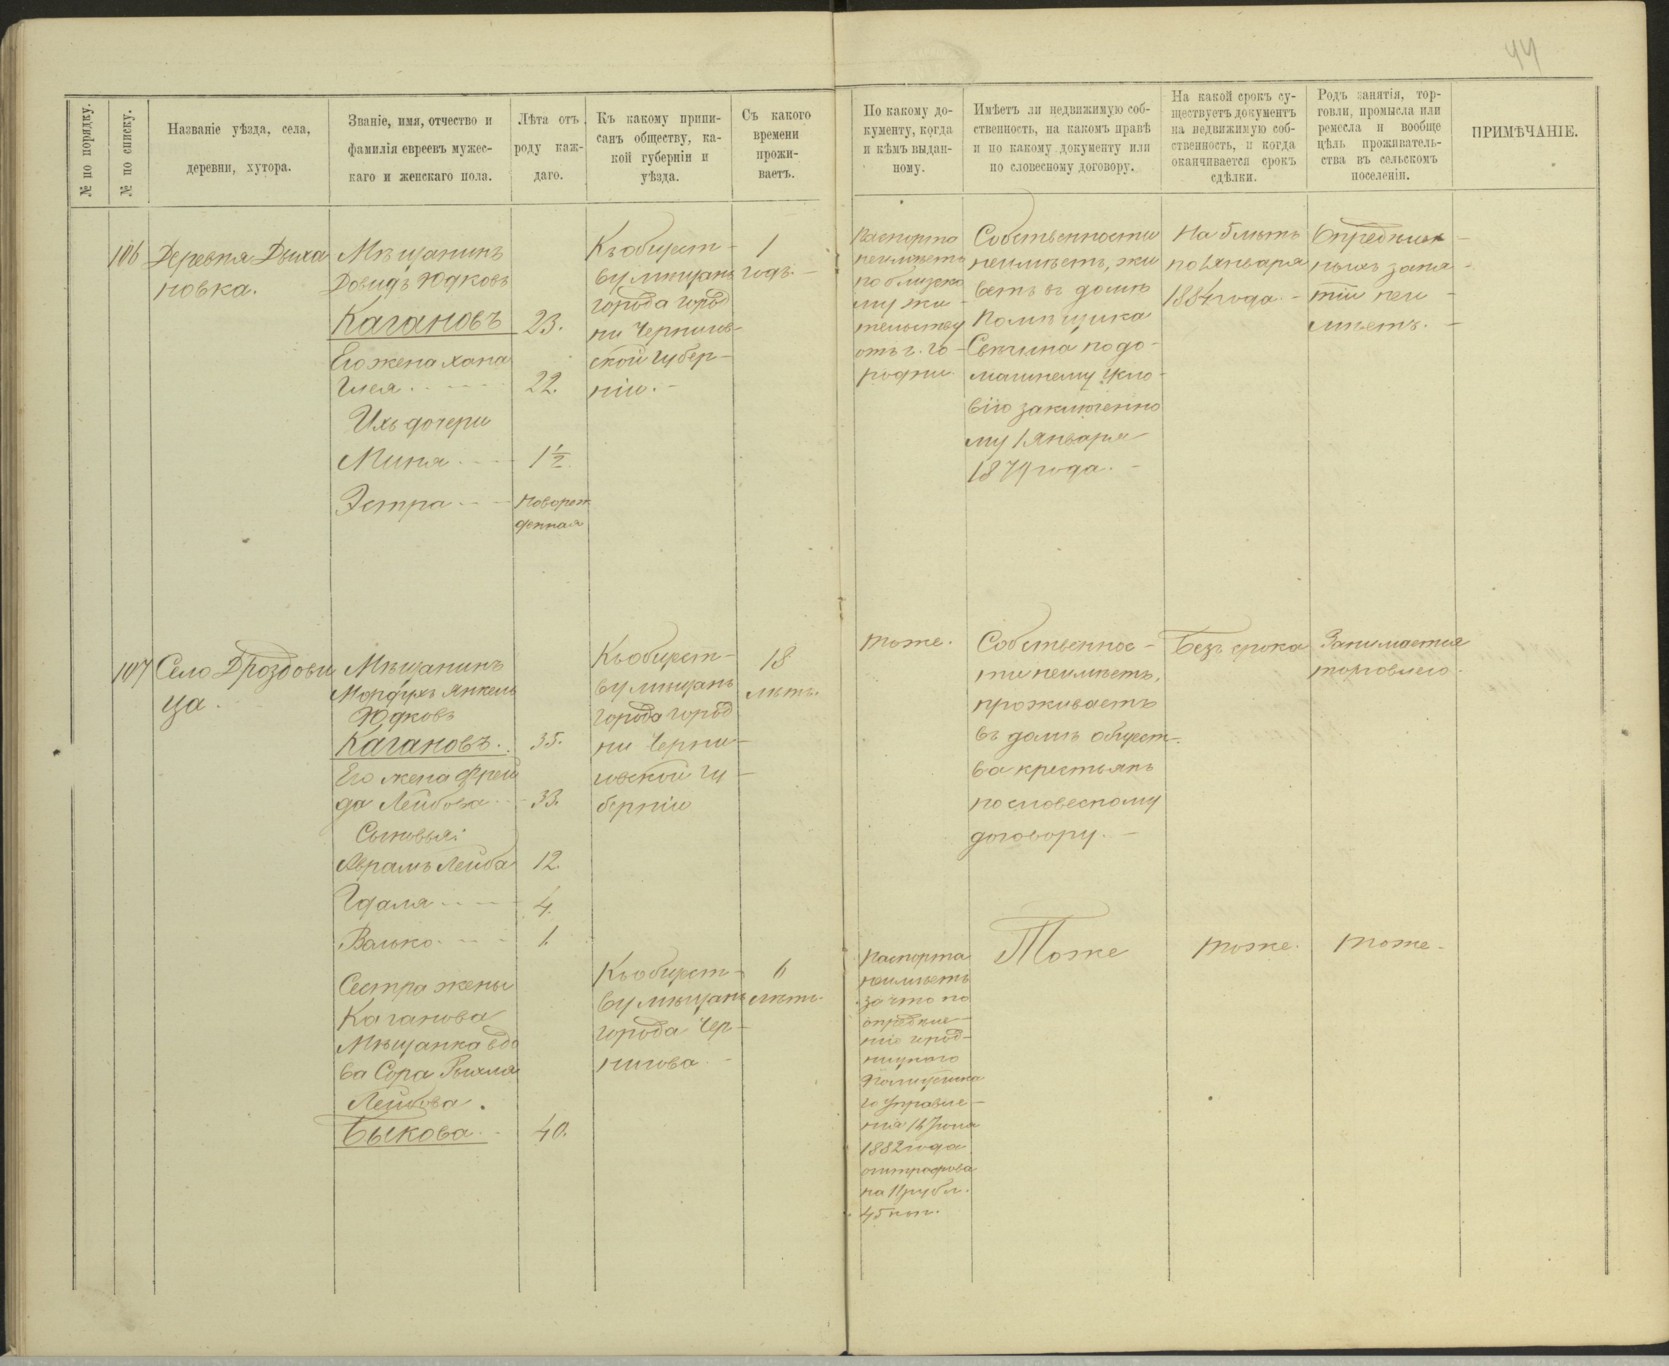 44
№ по порядку.
№ по списку.
Названіе уѣзда, села,
деревни, хутора.
Званіе, имя, отчество и
фамилія евреевъ мужес-
каго и женскаго пола.
Лѣта отъ
роду каж-
даго.
Къ какому припи-
санъ обществу, ка-
кой губерніи и
уѣзда.
Съ какого
времени
прожи-
ваетъ.
По какому до-
кументу, когда
и кѣмъ выдан-
ному.
Имѣетъ ли недвижимую соб-
ственность, на какомъ правѣ
и по какому документу или
по словесному договору.
На какой срокъ су-
ществуетъ документъ
на недвижимую соб-
ственность, и когда
оканчивается срокъ
сдѣлки.
Родъ занятія, тор-
говли, промысла или
ремесла и вообще
цѣль проживатель-
ства въ сельскомъ
поселеніи.
ПРИМѢЧАНІЕ.
106
Деревня Дыха
новка.
Мѣщанинъ
Довидъ Юдковъ
Кагановъ
Его жена Хана
Гися
Ихъ дочери
Миня
Эстра
23.
22.
1½
новорож
денная
Къ общест-
ву мѣщанъ
города Город
ни Чернигов-
ской губер-
ніи.-
1
годъ.-
Паспорта
неимѣетъ
по близко
му жи-
тельству
отъ г. Го-
родни.
Собственности
неимѣетъ, жи
ветъ въ домѣ
Помѣщика
по до-
машнему усло-
вію заключенно
му 1 Января
1879 года.-
На 5 лѣтъ
по 1 Января
1884 года.-
Опредѣлен-
ныхъ заня-
тій неи-
мѣетъ.-
107
Село Дроздови
ца.
Мѣщанинъ
Мордухъ Янкель
Юдковъ
Кагановъ.
Его жена Фрей
да Лейбова
Сыновья:
Абрамъ Лейба
Гдаля
Валько
35.
33.
12.
4.
1.
Къ общест-
ву мѣщанъ
города Город
ни Черни-
говской гу-
берніи
18
лѣтъ.
тоже.
Собственнос-
ти неимѣетъ,
проживаетъ
въ домѣ общест-
ва крестьянъ
по словесному
договору.-
Безъ срока
Занимается
торговлею.
Сестра жены
Каганова
Мѣщанка вдо
ва Сора Рыхля
Лейбова.
Быкова.
40.
Къ общест-
ву мѣщанъ
города Чер-
нигова.-
6
лѣтъ.
Паспорта
неимѣетъ
за что по
опредѣле-
нію Город-
ницкаго
Полицейска
го Управле-
нія 16 Іюня
1882 года
оштрафова
на 11 рубл.
45 коп.
Тоже
тоже.
тоже.